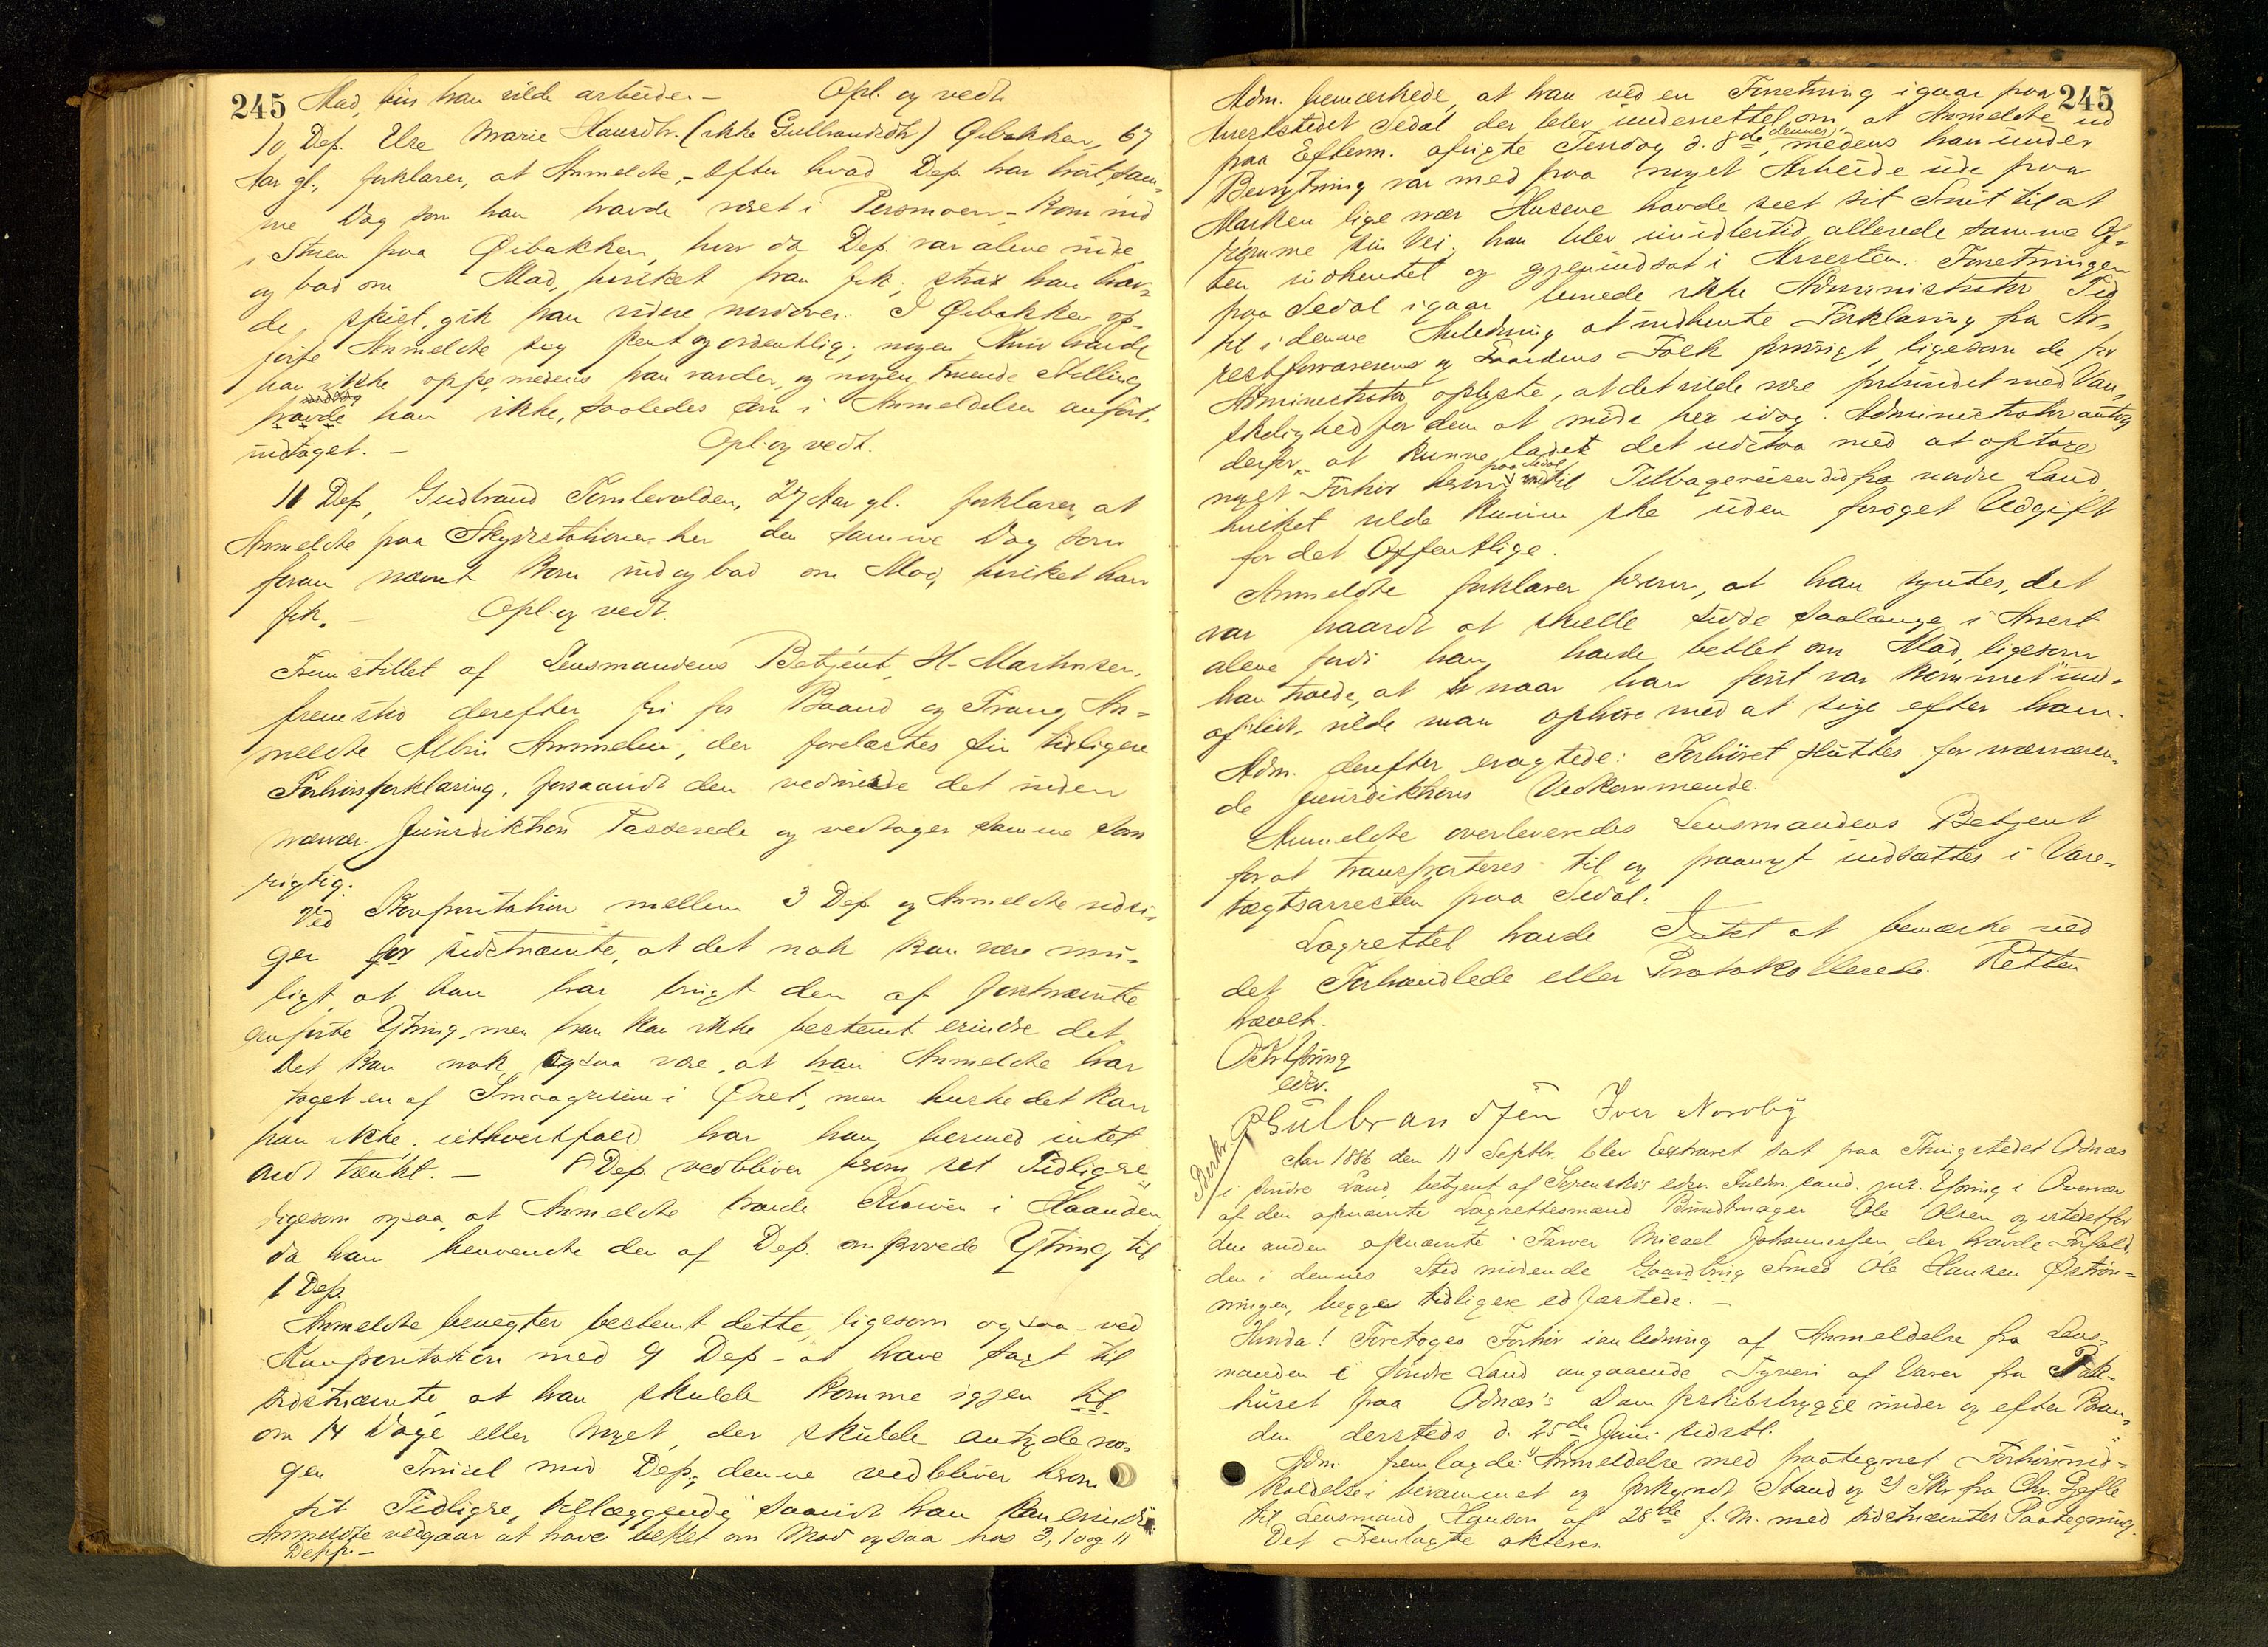 245 Mad, hvis han vilde arbeide. — Opl. og vedt.
10 Dep. Else Marie Hansdtr. (ikke Gulbrandsdtr) Øibakken, 67
Aar gl., forklarer, at Anmeldte, - efter hvad Dep. har hørt, sam-
me Dag som han havde været i Persmoen - kom ind
i Stuen paa Øibakken, hvor da Dep. var alene inde
og bad om Mad, hvilket han fik; strax han hav-
de spist, gik han videre nordover. I Øibakken op-
førte Anmeldte sig pent og ordentlig; nogen Kniv havde
han ikke oppe medens han var der, og nogen truende Stilling
havde han ikke, saaledes som i Anmeldelsen anført,
indtaget. — Opl. og vedt.
11 Dep, Gudbrand Tomlevolden, 27 Aar gl. forklarer, at
Anmeldte paa Skydsstationen her den samme Dag som
foran nævnt kom ind og bad om Mad, hvilket han
fik. — Opl. og vedt.
Fremstillet af Lensmandens Betjent, H. Martinsen,
fremstod derefter fri for Baand og Tvang An-
meldte Albin Ammelin, der forelæstes sin tidligere
Forhørsforklaring, forsaavidt den vedrørte det inden
nærvær. Jurisdiktion Passerede og vedtager samme som
rigtig.
Ved Konfrontation mellem 3 Dep og Anmeldte udsi-
ger for sidstnævnte, at det nok kan være mu-
ligt, at han har brugt den af førstnævnte
anførte Ytring, men han kan ikke bestemt erindre det.
Det kan nok ogsaa være, at han Anmeldte har
taget en af Smaagrisene i Øret, men huske det kan
han ikke; iethvertfald har han hermed intet
ondt tænkt. — 8 Dep. vedbliver herom sit Tidligere,
ligesom ogsaa, at Anmeldte havde Kniven i Haanden
da han henvendte den af Dep. omprovede Ytring til
1 Dep.
Anmeldte benegter bestemt dette, ligesom ogsaa - ved
Konfrontation med 9 Dep - at have sagt til
sidstnævnte, at han skulde komme igjen til
om 14 Dage eller Noget, der skulde antyde no-
gen Trusel mod Dep.; denne vedbliver herom
sit Tidligre, tillæggende: saavidt han kan erindre.
Anmeldte vedgaar at have bettet om Mad ogsaa hos 3, 10 og 11
Depp. —
Adm. bemærkede, at han ved en Forretning igaar paa 245
Arreststedet Sedal der blev underrettet om, at Anmeldte ud
paa Efterm. afvigte Tirsdag d. 8de dennes, medens han under
Bevogtning var med paa noget Arbeide ude paa
Marken lige nær Husene havde seet sit Snit til at
rømme sin Vei; han blev imidlertid allerede samme Af-
ten indhentet og gjenindsat i Arresten. Forretningen
paa Sedal igaar levnede ikke Administrator Tid
til i denne Anledning at indhente Forklaring fra Ar-
restforvarerens og Gaardens Folk forøvrigt, ligesom de for
Administrator oplyste, at det vilde være forbundet med Van-
skelighed for dem at møde her idag. Administrator antog
derfor, at kunne ladet det udstaa med at optage
noget Forhør herom paa Sedal indtil Tilbagereisen did fra nordre Land,
hvilket vilde kunne ske uden forøget Udgift
for det Offentlige.
Anmeldte forklarer herom, at han syntes, det
var haardt at skulle sidde saalænge i Arrest
alene fordi han havde bettet om Mad, ligesom
han troede, at naar han først var kommet und-
af lidt, vilde man ophøre med at søge efter ham.
Adm. derefter eragtede: Forhøret sluttes for nærværen-
de Jurisdiktions Vedkommende.
Anmeldte overleveredes Lensmandens Betjent
for at transporteres til og paanyt indsættes i Vare-
tægtsarresten paa Sedal.
Lagrettet havde Intet at bemærke ved
det Forhandlede eller Protokollerede. Retten
hævet.
edsv.
Gulbrandsen Iver Nordby
Beskr.
Aar 1886 den 11 Septbr. blev Extraret sat paa Thingstedet Odnæs
i søndre Land, betjent af Sorenskr's edsv. Fuldm. cand. jur. Ytring i Overvær
af den opnævnte Lagrettesmænd Bundtmager Ole Olsen og istedetfor
den anden opnævnte Farver Micael Johannessen, der havde Forfald,
den i dennes Sted mødende Gaardbrug Smed Ole Hansen Østrøn-
ningen, begge tidligere edfæstede. —
Hvorda! Foretoges Forhør i anledning af Anmeldelse fra Lens-
manden i søndre Land angaaende Tyveri af Varer fra Pak-
huset paa Odnæs's Dampskibsbrygge under og efter Bran-
den dersteds d. 25de Juni sidstl.
Adm. fremlagde: 1) Anmeldelse med paategnet Forhørsind-
kaldelse i berammet og forkyndt Stand og 2) Skr. fra Chr. Gefle
til Lensmand Hanson af 28de f. M. med sidstnævntes Paategning.
Det Fremlagte akteres.